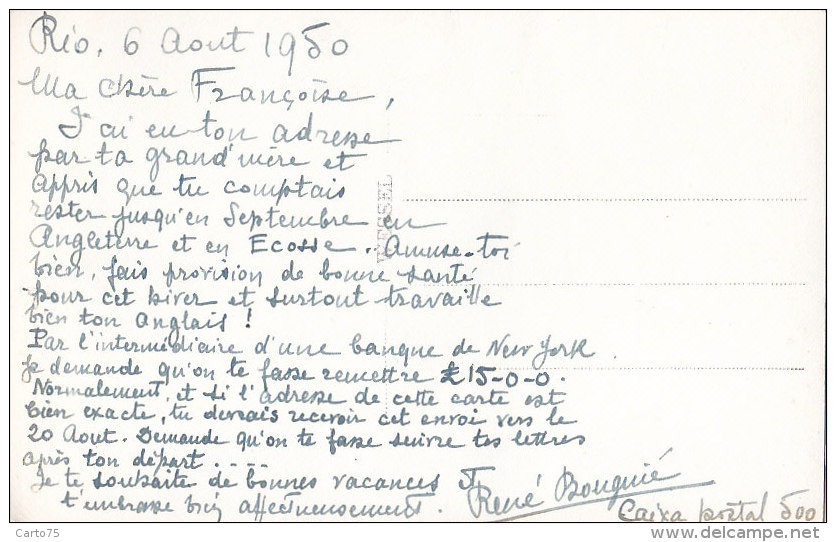 Rio, 6 Aout 1950
Ma chère Françoise,
J'ai eu ton adresse
par ta grand'mère et
appris que tu comptais
rester jusqu'en Septembre en
Angleterre et en Ecosse.. Amuse-toi
bien, fais provision de bonne santé
pour cet hiver et surtout travaille
bien ton anglais !
Par l'intermédiaire d'une banque de New York
je demande qu'on te fasse remettre £15-0-0.
Normalement, et si l'adresse de cette carte est
bien exacte, tu devrais recevoir cet envoi vers le
20 Aout. Demande qu'on te fasse suivre tes lettres
après ton départ....
Je te souhaite de bonnes vacances et
t'embrasse bien affectueusement. René Bouguié
Caixa postal 500
WESSEL
Carto75
delcampe.net